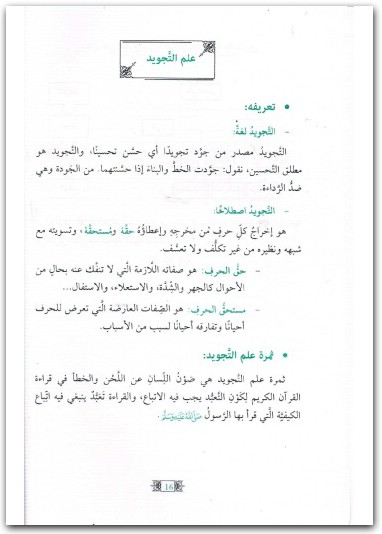 علم التَّجويد
• تعريفه:
– التَّجويدُ لغةً:
التَّجويدُ مصدر من جوَّد تجويدًا أي حسَّن تحسينًا، والتَّجويد هو
مطلق التَّحسين، نقول: جوَّدت الخطَّ والبناءَ إذا حسَّنتهما. من الجَودة وهي
ضدُّ الرَّداءة.
– التَّجويدُ اصطلاحًا:
هو إخراجُ كلِّ حرفٍ من مخرجِهِ وإعطاؤُهُ حقَّهُ ومُستحقَّهُ، وتسويته مع
شبهه ونظيره من غير تكلُّف ولا تعسُّف.
– حقُّ الحرفِ: هو صفاته اللَّازمة الَّتي لا تنفَّك عنه بحال من
الأحوال كالجهر والشِّدَّة، والاستعلاء، والاستفال...
– مستحقُّ الحرفِ: هو الصِّفات العارضَة الَّتي تعرض للحرف
أحيانًا وتفارقه أحيانًا لسبب من الأسباب.
• ثمرة علم التَّجويد:
ثمرة علم التَّجويد هي صَوْنُ اللِّسان عن اللَّحْن والخطأ في قراءة
القرآن الكريم لِكَوْنِ التَّعبُّد يجب فيه الاتباع، والقراءة تَعَبُّدٌ ينبغي فيه اتِّباع
الكيفيَّة الَّتي قرأ بها الرَّسولُ ﷺ.
16